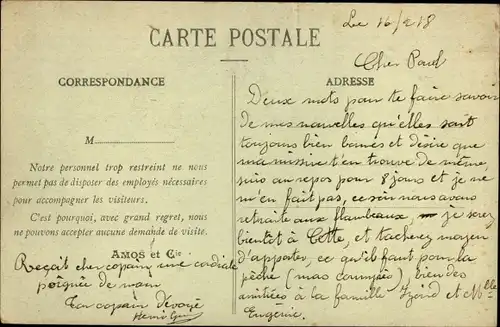 Le 16/2 18
CARTE POSTALE
CORRESPONDANCE
ADRESSE
M
Notre personnel trop restreint ne nous
permet pas de disposer des employés nécessaires
pour accompagner les visiteurs.
C'est pourquoi, avec grand regret, nous
ne pouvons accepter aucune demande de visite.
AMOS et Cie
Reçoit cher copain une cordiale
poignée de main
Ton copain Dévoué
Henri
Cher Paul
Deux mots pour te faire savoir
de mes nouvelles qu'elles sont
toujours bien bonnes et désire que
ma missive t'en trouve de même,
suis au repos pour 8 jours et je ne
m'en fait pas, ce soir nous avons
retraite aux flambeaux, je serez
bientôt à Cette, et tacherez moyen
d'apporter, ce qu'il faut pour la
pêche (mas compris) bien des
amitiées à la famille et Mlle
Eugénie.